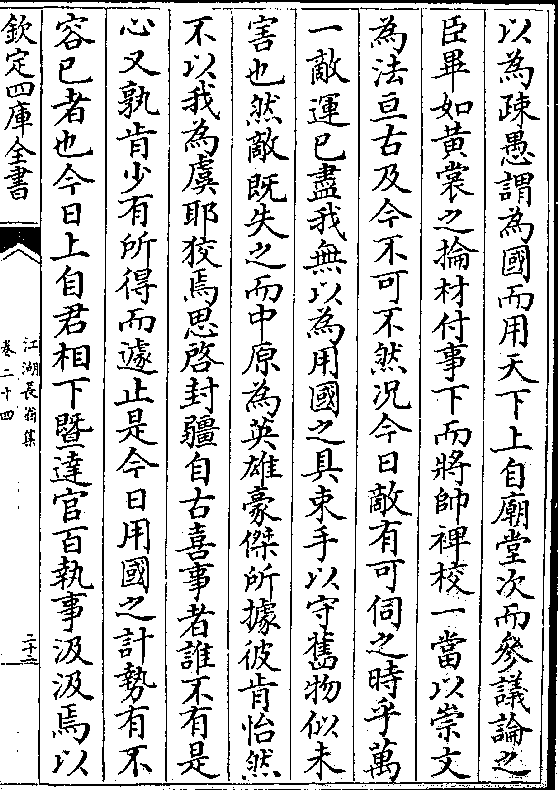 以為疎愚謂為國而用天下上自廟堂次而參議論之
臣畢如黃裳之掄材付事下而將帥裨校一當以崇文
為法亘古及今不可不然况今日敵有可伺之時乎萬
一敵運已盡我無以為用國之具束手以守舊物似未
害也然敵既失之而中原為英雄豪傑所據彼肯怡然
不以我為虞耶狡焉思啓封疆自古喜事者誰不有是
心又孰肯少有所得而遽止是今日用國之計勢有不
容已者也今日上自君相下暨達官百執事汲汲焉以
欽定四庫全書
江湖長翁集
卷二十四
二十三